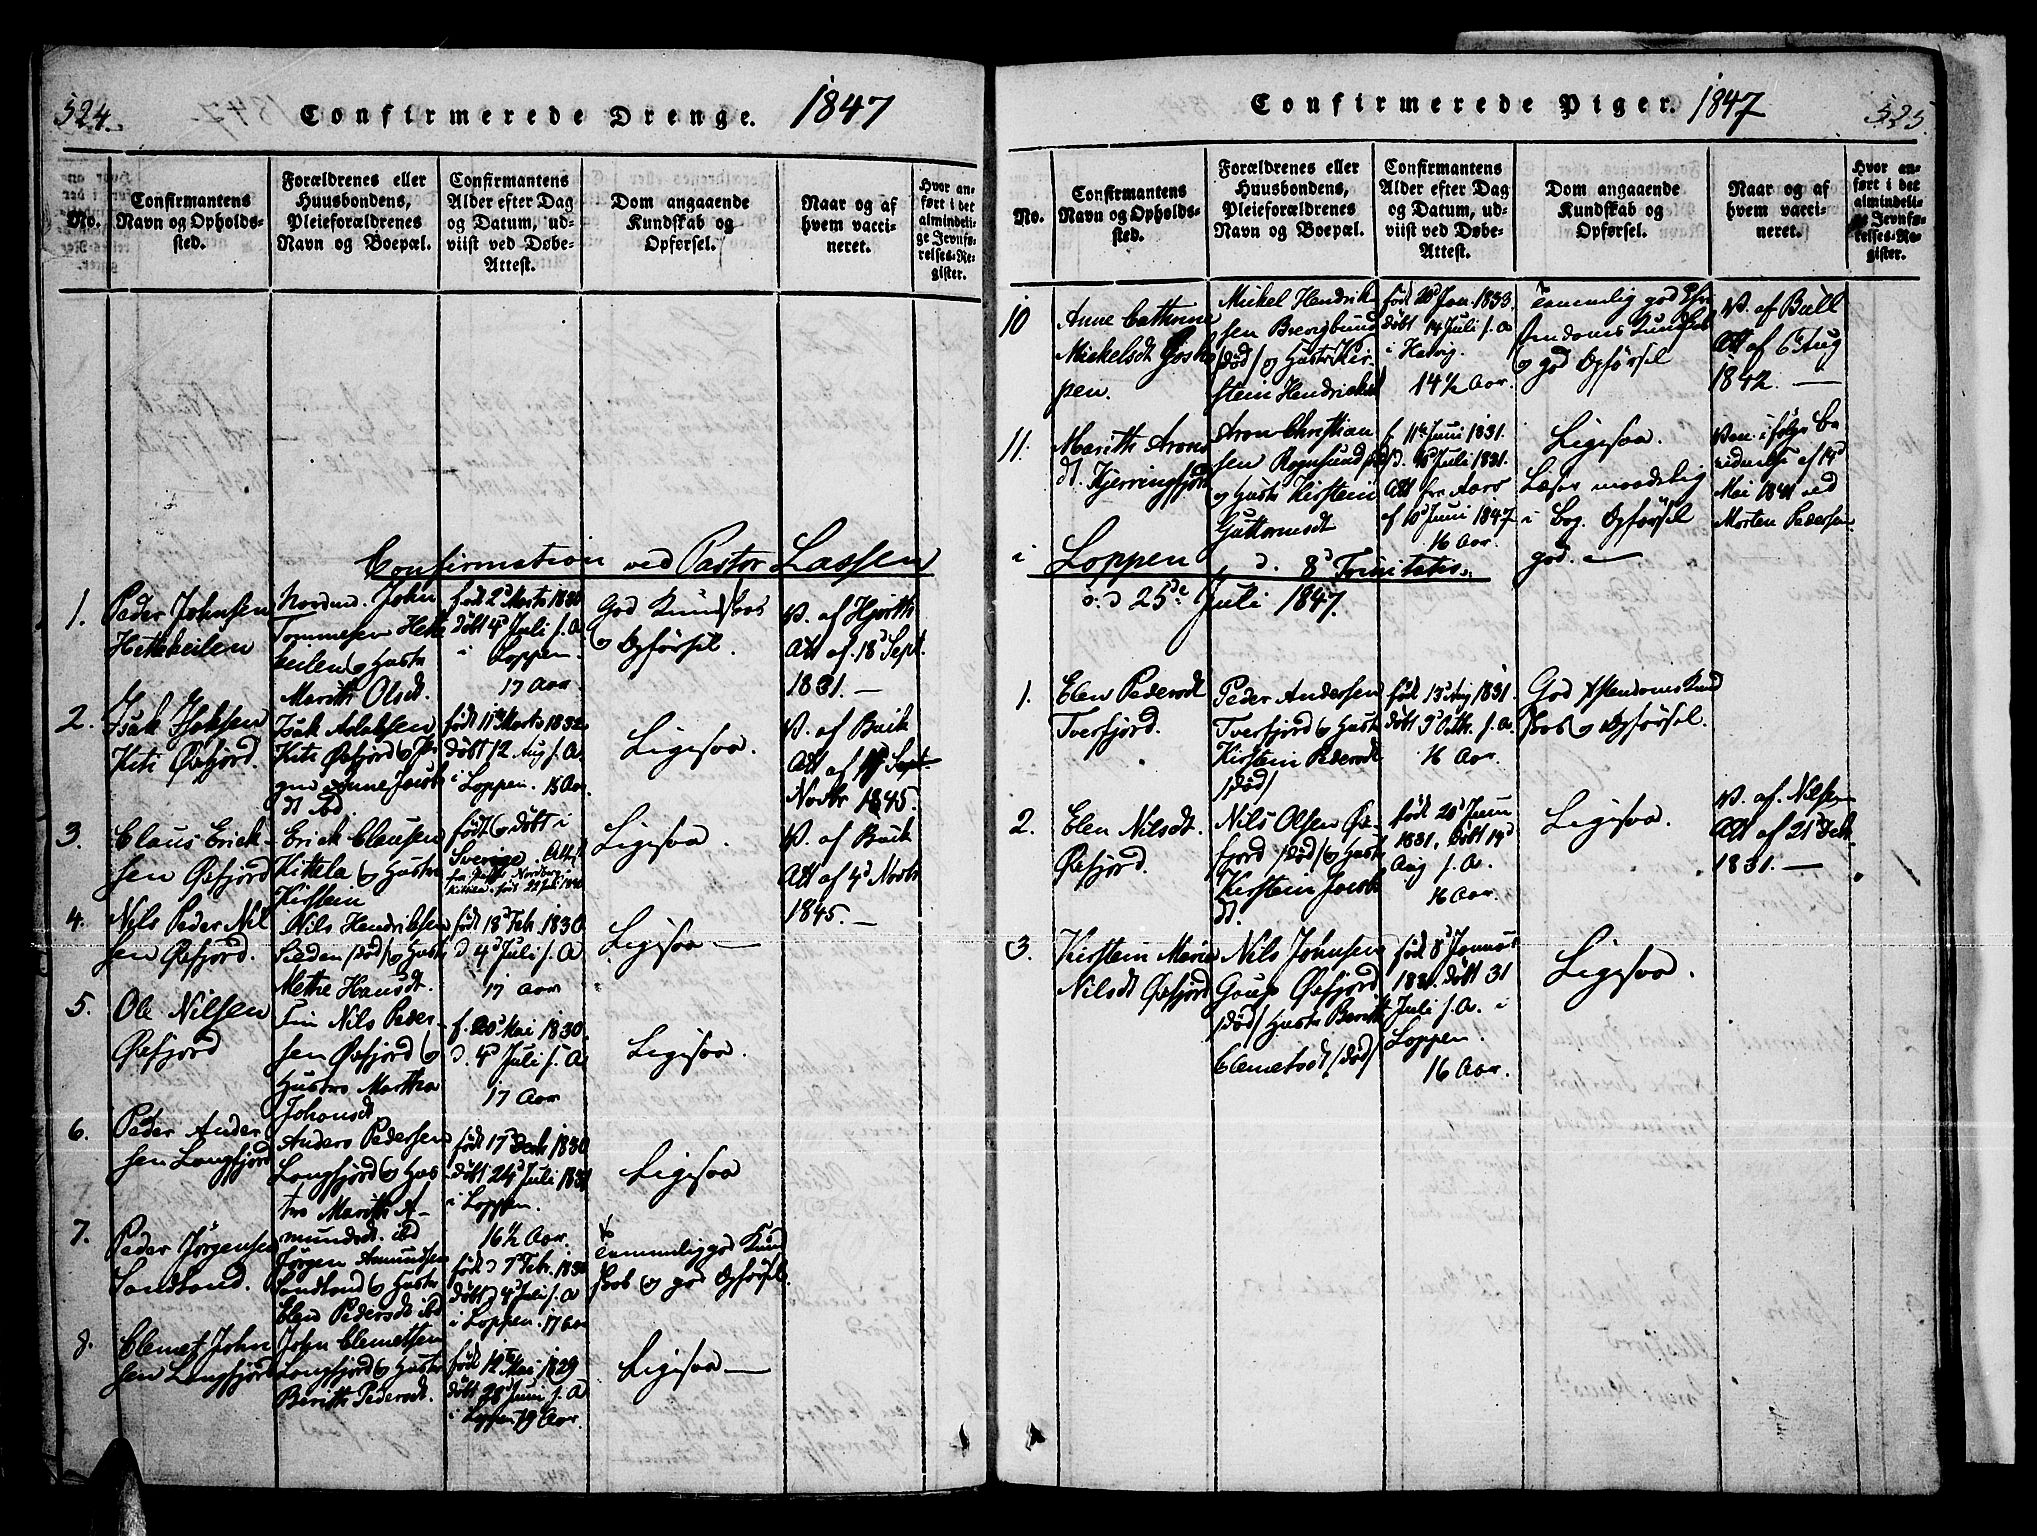 524.
Confirmerede Drenge. 1847
No.
Confirmantens
Navn og Opholds-
sted.
Forældrenes eller
Huusbondens,
Pleieforældrenes
Navn og Boepæl.
Confirmantens
Alder efter Dag
og Datum, ud-
viist ved Døbe-
Attest.
Dom angaaende
Kundskab og
Opførsel.
Naar og af
hvem vacci-
neret.
Hvor an-
ført i det
almindeli-
ge Jevnfø-
relses-Re-
gister.
Confirmation ved Pastor Lassen
1.
Peder Johnsen
Hettekeilen
Nordm. John
Tommesen Hette
keilen og Hustr
Marith Olsdt.
født 2d Marts 1830
døbt 4d Juli s. A.
i Loppen.
17 Aar
God Kundskab
og Opførsel.
V. af Hjorth
Att af 18d Sept.
1831. —
2.
Isak Isaksen
Kiti Øxfjord.
Isak Aslaksen
Kiti Øxfjord og
Anne Jacobs
dt ibd.
født 11te Marts 1832
døbt 12 Aug s. A.
i Loppen. 15 Aar
Ligesaa.
V. af Buck
Att af
Novbr 1845.
3.
Claus Erick-
sen Øxfjord
Erick Clausen
Kittela og Hustru
Kirstein
født og døbt i
Sverige. Att
Ligesaa.
V. af Buck
Att af 4d Novbr
1845. —
4.
Nils Peder Nil
sen Øxfjord.
Nils Hendriksen
Seiden /død/ og Hustr
Methe Hansdt.
født 18d Febr. 1830
d 4d Juli s. A
17 Aar
Ligesaa —
5.
Ole Nilsen
Øxfjord
Fin Nils Peder-
sen Øxfjord og
Hustru Martha
Johansdt
f. 20d Mai 1830.
d. 4d Juli s. A
17 Aar
Ligesaa.
6.
Peder Ander
sen Langfjord
Anders Pedersen
Langfjord og Hus
tru Marith A-
mundsdt. ibd
født 17d Decb 1830
døbt 24d Juli 1831
i Loppen.
16½ Aar.
Ligesaa
7.
Peder Jørgensen
Sandland.
Jørgen Amundsen
Sandland og Hustr
Elen Pedersdt ibd
født d 7d Febr. 1830
døbt d 4d Juli s. A
i Loppen. 17 Aar
Temmelig god Kund
skab og god Opførsel.
8.
Clemet John
sen Langfjord
John Clemetsen
Langfjord og Hustr
Berith Pedersdt.
født 12te Mai 1829
døbt 28d Juni s. A
i Loppen 19 Aar
Ligesaa —
Confirmerede Piger. 1847
525.
No.
Confirmantens
Navn og Opholds-
sted.
Forældrenes eller
Huusbondens,
Pleieforældrenes
Navn og Boepæl.
Confirmantens
Alder efter Dag
og Datum, ud-
viist ved Døbe-
Attest.
Dom angaaende
Kundskab og
Opførsel.
Naar og af
hvem vacci-
neret.
Hvor an-
ført i det
almindeli-
ge Jevnfø-
relses-Re-
gister.
10
Anne Cathrine
Mickelsdt
pen.
Mickel Hendrik
sen
/død/ og Hustr Kir-
stein Hendricksdt
født 20d Jan. 1833.
døbt 14 Juli s. A
i Hasvig.
14½ Aar.
Temmelig god Chri
stendoms Kundskab
og god Opførsel
V. af Ball
Att af 6d Aug
1842. —
11.
Marith Arons
dt. Kjerringfjord
Aron Christian
sen Rognsund /død/
og Hustr Kirstein
Guttormsdt
f. 11te Juni 1831.
d. Juli 1831.
Att fra Aarø
af 10d Juni 1847.
16 Aar.
Ligesaa.
Læser maadelig
i Bog. Opførsel
god. —
Vacc. i følge be
vidnelse af 14d
Mai 1841 ved
Morten Pedersen.
i Loppen d. 8d Trinitatis.
o: d 25de Juli 1847.
1.
Elen Pedersdt
Tverfjord.
Peder Andersen
Tverfjord og Hustr
Kirstein Pedersdt
/død/
født 13d Aug 1831.
døbt 3d Octbr. s. A.
16 Aar.
God Xstendoms Kund
skab og Opførsel.
2.
Elen Nilsdt.
Øxfjord.
Nils Olsen Øx-
fjord /død/ og Hustr
Kirstein Jacobs
dt.
født 20d Juni
1831. døbt 14d
Aug s. A.
16 Aar.
Ligesaa.
V. af. Nilsen
Att af 21d Febr
1831. —
3.
Kirstein Marie
Nilsdt Øxfjord
Nils Johnsen
Gaup Øxfjord
/død/ Hustr Berith
Clemetsdt /død/
født 8d Januar
1831. døbt 31
Juli s. A. i
Loppen.
16 Aar.
Ligesaa.